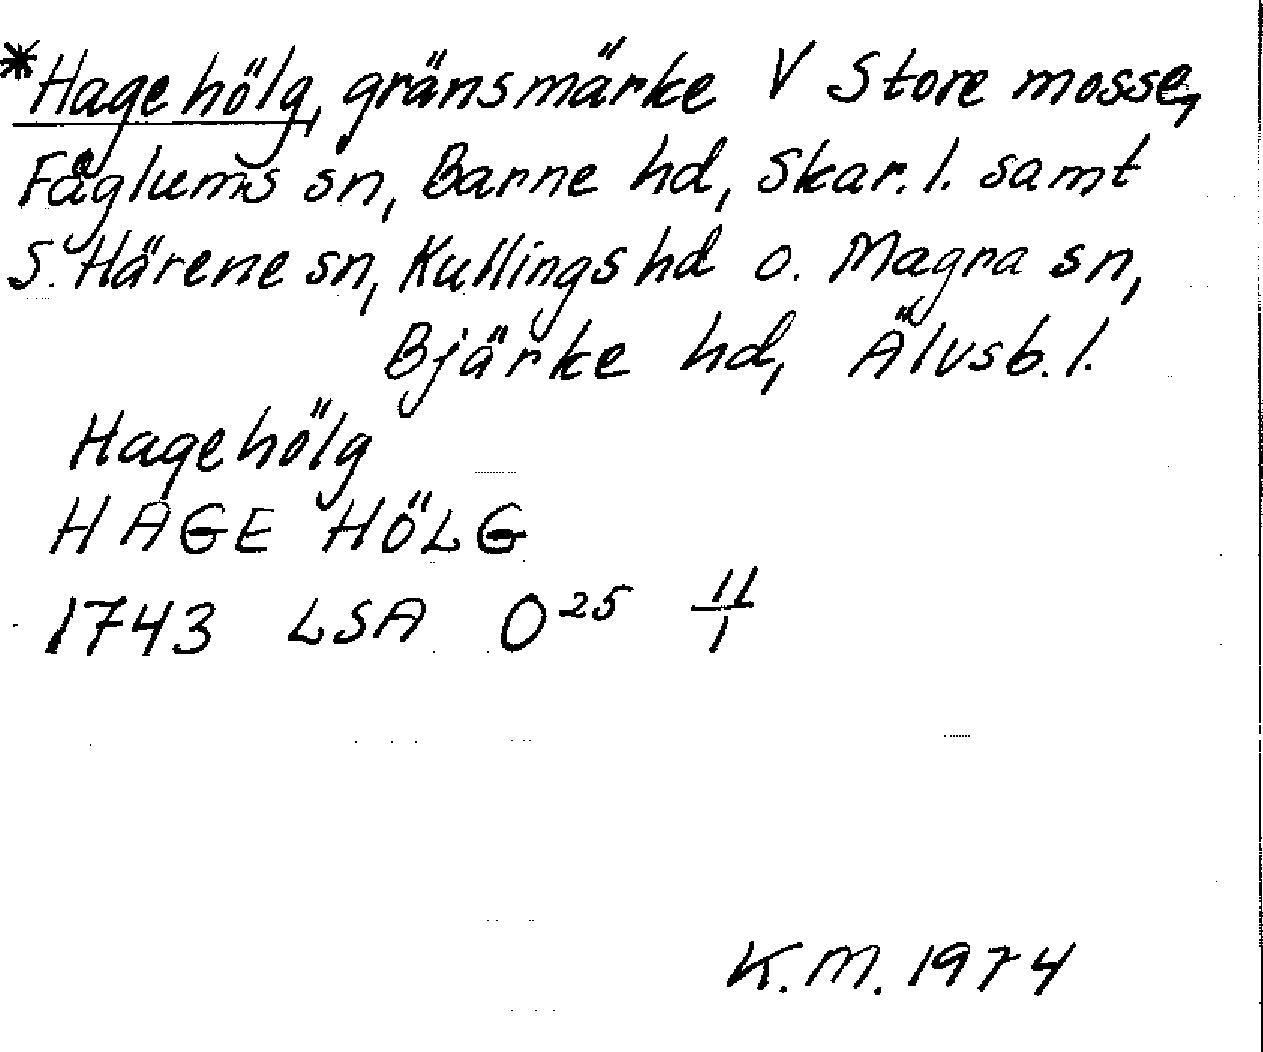 *Hagehölg, gränsmärke V Store mosse,
Fåglums sn, Barne hd, Skar. l. samt
S. Härene sn, Kullings hd o. Magra sn,
Bjärke hd, Älvsb. l.
Hagehölg
HAGE HÖLG
1743 LSA O25 11/1
K.M. 1974